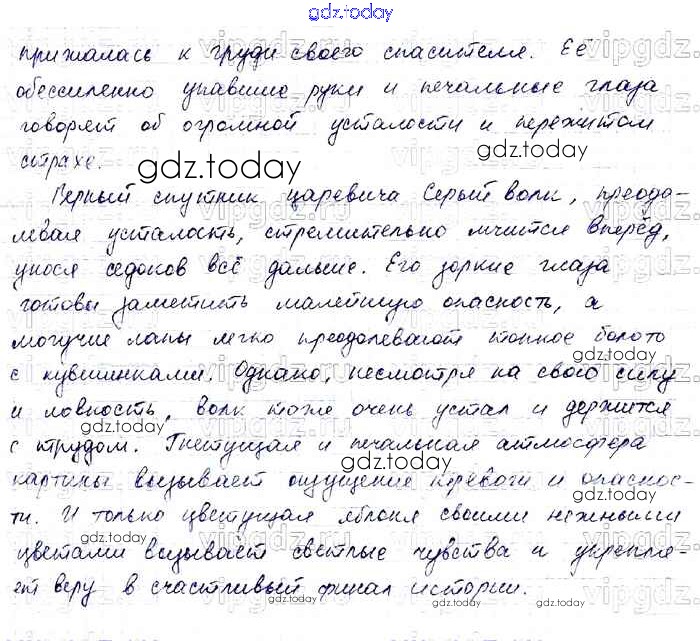 gdz.today
прижалась к груди своего спасителя. Её
обессиленно упавшие руки и печальные глаза
говорят об огромной усталости и пережитом
страхе.
gdz.today
gdz.today
Верный спутник царевича Серый волк, преодо-
левая усталость, стремительно мчится вперёд,
унося седоков всё дальше. Его зоркие глаза
готовы заметить малейшую опасность, а
могучие лапы легко преодолевают топкое болото
gdz.today
с кувшинками. Однако, несмотря на свою силу
и ловкость, волк тоже очень устал и держится
gdz.today
с трудом. Гнетущая и печальная атмосфера
gdz.today
картины вызывает ощущение тревоги и опаснос-
ти. И только цветущая яблоня своими нежными
цветами вызывает светлые чувства и укрепля-
ет веру в счастливый финал истории.
gdz.today
gdz.today